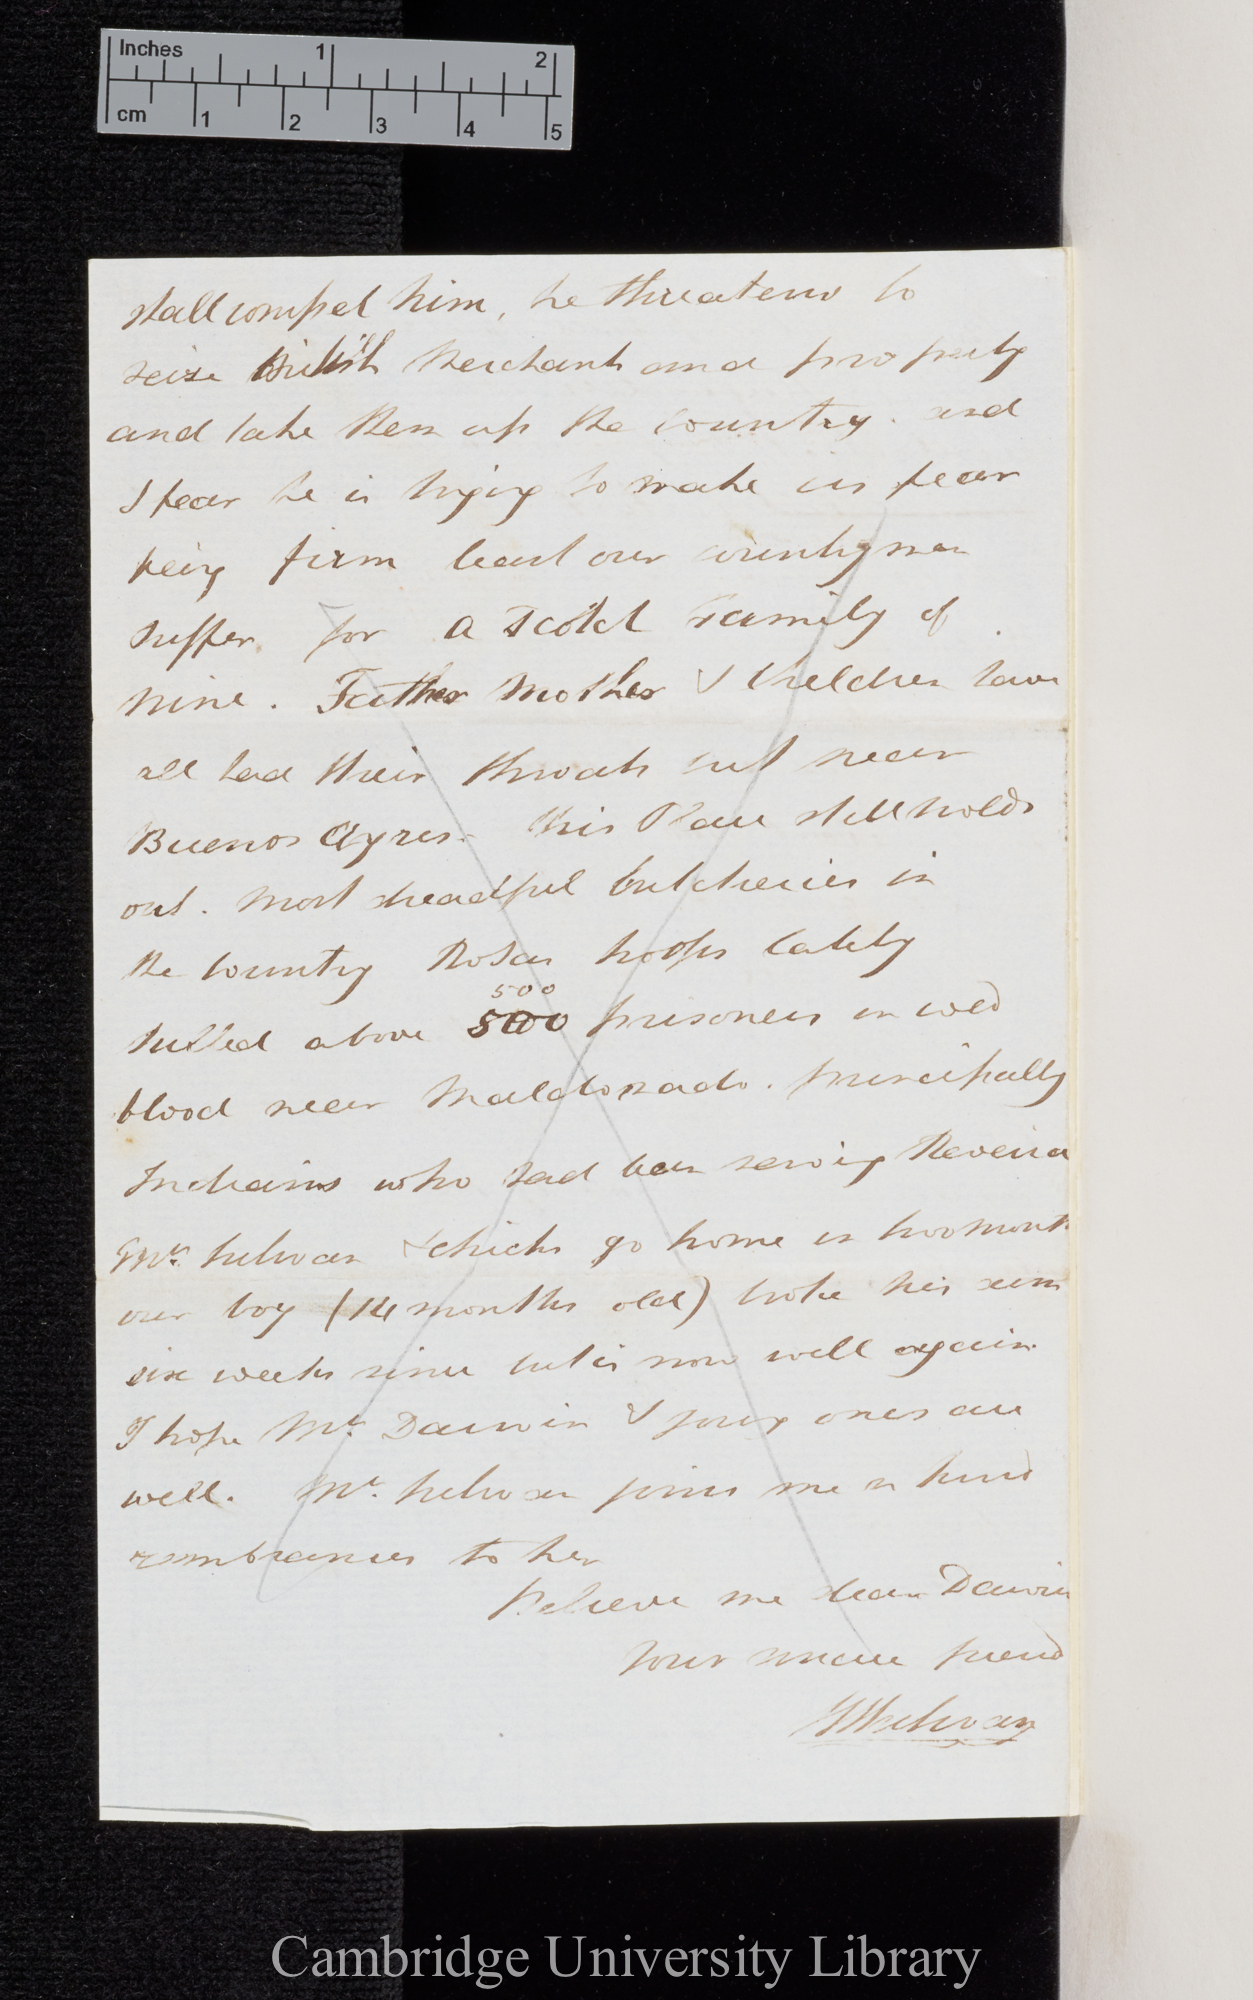 Inches 1 2
cm 1 2 3 4 5
shall compel him, he threatens to
seize British Merchants and property
and take them up the country. and
I fear he is trying to make us fear
being firm least our countrymen
suffer. for a Scotch Family of
nine. Father Mother & Children have
all had their throats cut near
Buenos Ayres. this Place still holds
out. most dreadful butcheries in
the country Rosas troops lately
500
killed above 500 prisoners in cold
blood near Maldonado. principally
Indians who had been serving Reveira
Mrs. Sulivan & chicks go home in two month
our boy (14 months old) broke his arm
six weeks since but is now well again.
I hope Mrs. Darwin & young ones are
well. Mrs. Sulivan joins me in kind
rembrances to her
Believe me dear Darwin
Your sincere friend
Sulivan
Cambridge University Library